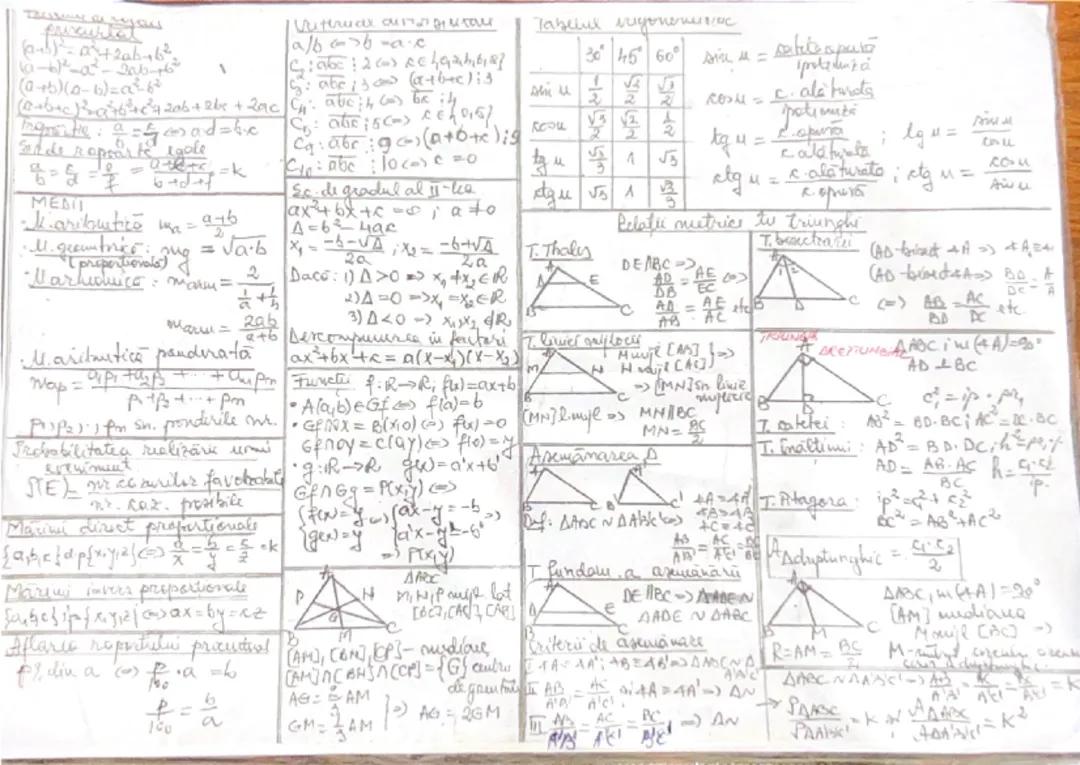 (a+b)²=a²+2ab+b²
(a-b)²=a²-2ab+b²
(a+b)(a-b)=a²-b²
(a+b+c)²=a²+b²+c²+2ab+2bc+2ac
a/b = c/d <=> a·d=b·c
Șir de rapoarte egale
a/b = c/d = e/f = (a+c+e)/(b+d+f) = k
MEDII
·M. aritmetică ma = (a+b)/2
·M. geometrică: mg = √a·b
(proporțională)
M armonică: marm = 2/(1/a+1/b)
marm = 2ab/(a+b)
·M. aritmetică ponderată
map = (a₁p₁+a₂p₂+···+anpm)/(p₁+p₂+···+pm)
p₁, p₂, ..., pm sn. ponderile nr.
Probabilitatea realizării unui
eveniment
P(E)= nr. cazurilor favorabile / nr. caz. posibile
Mărimi direct proporționale
{a,b,c} d.p{x,y,z} <=> a/x = b/y = c/z = k
Mărimi invers proporționale
{a,b,c} ip {x,y,z} <=> ax=by=cz
Aflarea raportului procentual
p% din a <=> p/100 · a = b
p/100 = b/a
Criterii de divizibilitate
a/b <=> b=a·c
C₂: abc ⋮ 2 <=> c∈{0,2,4,6,8}
C₃: abc ⋮ 3 <=> (a+b+c)⋮3
C₄: abc ⋮ 4 <=> bc ⋮ 4
C₅: abc ⋮ 5 <=> c∈{0,5}
C₉: abc ⋮ 9 <=> (a+b+c)⋮9
C₁₀: abc ⋮ 10 <=> c=0
Ec. de gradul al II-lea
ax²+bx+c=0, a≠0
Δ=b²-4ac
x₁ = (-b-√Δ)/2a ; x₂ = (-b+√Δ)/2a
Dacă: 1) Δ>0 => x₁≠x₂∈R
2) Δ=0 => x₁=x₂∈R
3) Δ<0 => x₁,x₂∉R
Descompunerea în factori
ax²+bx+c=a(x-x₁)(x-x₂)
Funcții f:R→R, f(x)=ax+b
·A(a,b)∈Gf <=> f(a)=b
·Gf∩OX=B(x,0) <=> f(x)=0
Gf∩OY=C(0,y) <=> f(0)=y
·g:R→R g(x)=a'x+b'
Gf∩Gg=P(x,y) <=>
{f(x)=y <=> {ax-y=-b =>
{g(x)=y {a'x-y=-b'
=> P(x,y)
ΔABC
M,N,P mijl. lat
[BC],[AC],[AB]
A
P N
G
B M C
[AM], [BN], [CP] - mediane
[AM]∩[BN]∩[CP]={G} centru
de greutate
AG=2/3 AM
GM=1/3 AM => AG=2GM
Tabelul trigonometric
30° 45° 60°
sin u 1/2 √2/2 √3/2
cos u √3/2 √2/2 1/2
tg u √3/3 1 √3
ctg u √3 1 √3/3
sin u = cateta opusă/ipotenuză
cos u = c. alăturată/ipotenuză
tg u = c. opusă/c. alăturată ; tg u = sin u/cos u
ctg u = c. alăturată/c. opusă ; ctg u = cos u/sin u
Relații metrice în triunghi
T. Thales
A
D E
B C
DE∥BC =>
AD/DB = AE/EC <=>
AD/AB = AE/AC etc
T. bisectoarei
A
1 2
B D C
<=> AB/BD = AC/DC etc.
T. liniei mijlocii
A
M N
B C
M mijl [AB]
N mijl [AC] =>
=> [MN] sn. linie
mijlocie
[MN] l. mijl => MN∥BC
MN = BC/2
TRIUNGHI
DREPTUNGHIC
A
B D C
ΔABC, m(∢A)=90°
AD⊥BC
T. catetei: AB²=BD·BC; AC²=DC·BC
T. înălțimii: AD²=BD·DC
AD = AB·AC/BC h = c₁·c₂/ip.
T. Pitagora: ip²=c₁²+c₂²
BC²=AB²+AC²
A Δdreptunghic = c₁·c₂/2
Asemănarea Δ
A A'
B C B' C'
∢A=∢A'
∢B=∢B'
∢C=∢C'
Def: ΔABC ~ ΔA'B'C' <=>
T. fundam. a asemănării
A
D E
B C
DE∥BC => ΔADE ~
ΔADE ~ ΔABC
Criterii de asemănare
I ∢A=∢A'; ∢B=∢B' => ΔABC ~ Δ
II AB/A'B' = AC/A'C' și ∢A=∢A' => Δ~
III AB/A'B' = AC/A'C' = BC/B'C' => Δ~
A
B M C
ΔABC, m(∢A)=90°
[AM] mediana
M mijl [BC] =>
R=AM=BC/2
PΔABC/PΔA'B'C' = k și AΔABC/AΔA'B'C' = k²